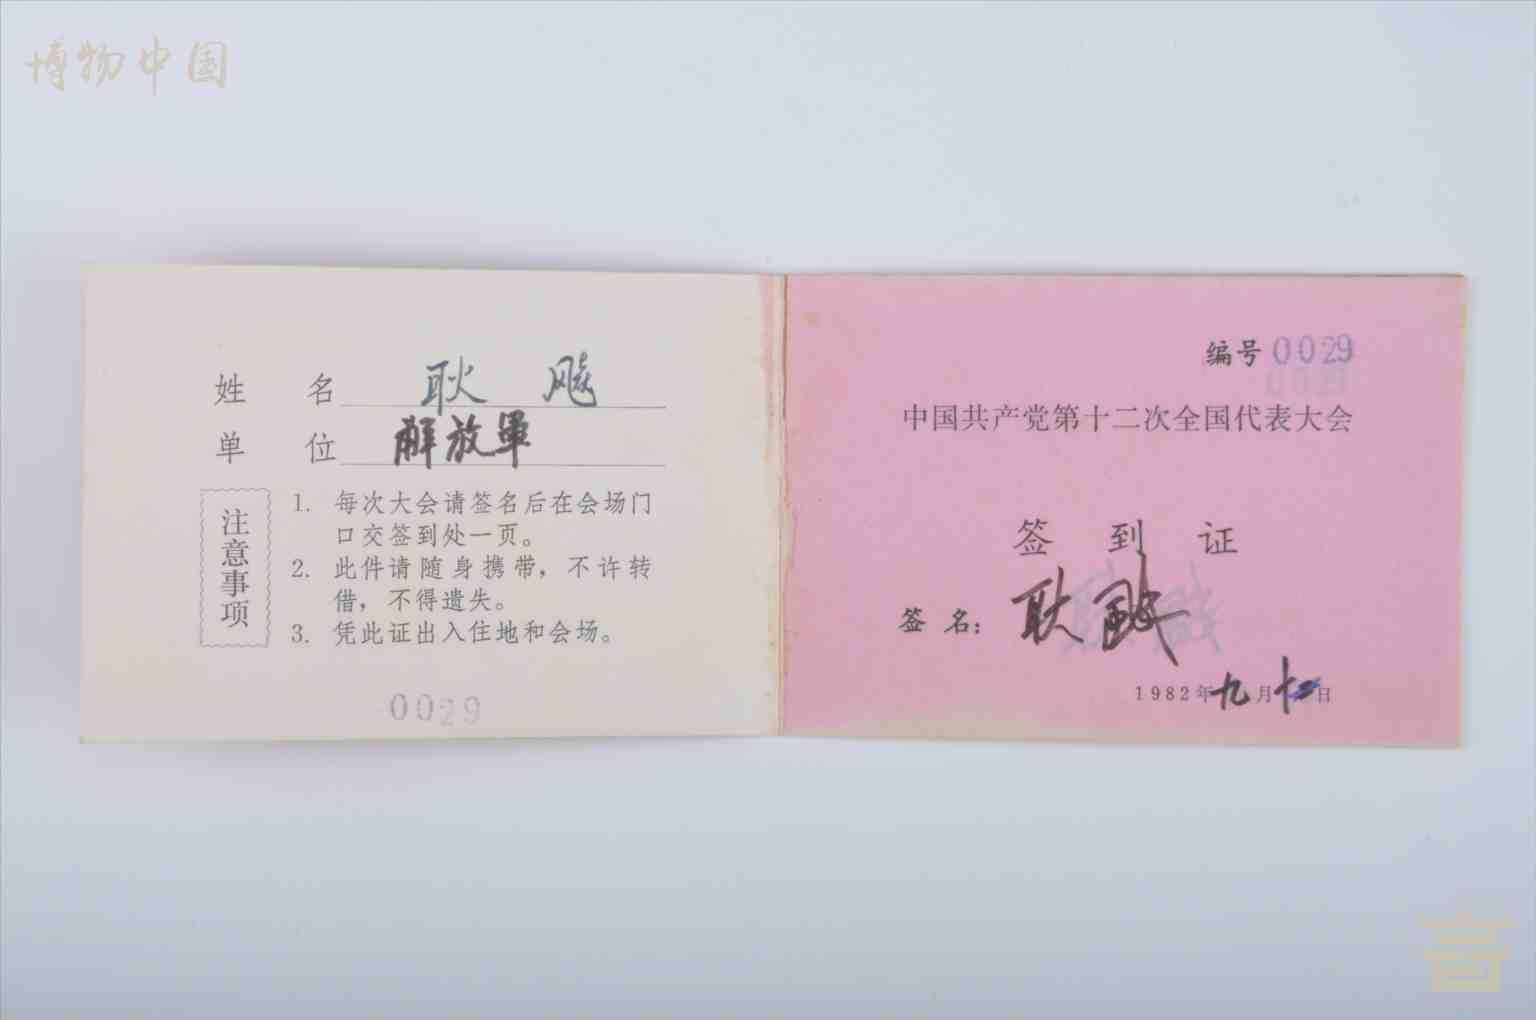 博物中国
姓名 耿飚
单位 解放軍
注意事项
1. 每次大会请签名后在会场门
口交签到处一页。
2. 此件请随身携带，不许转
借，不得遗失。
3. 凭此证出入住地和会场。
0029
编号 0029
中国共产党第十二次全国代表大会
签到证
签名：耿飚
1982年九月十二日